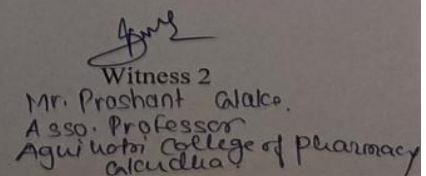 Witness 2
Mr. Prashant
Asso. Professor
Agnihotri College of pharmacy